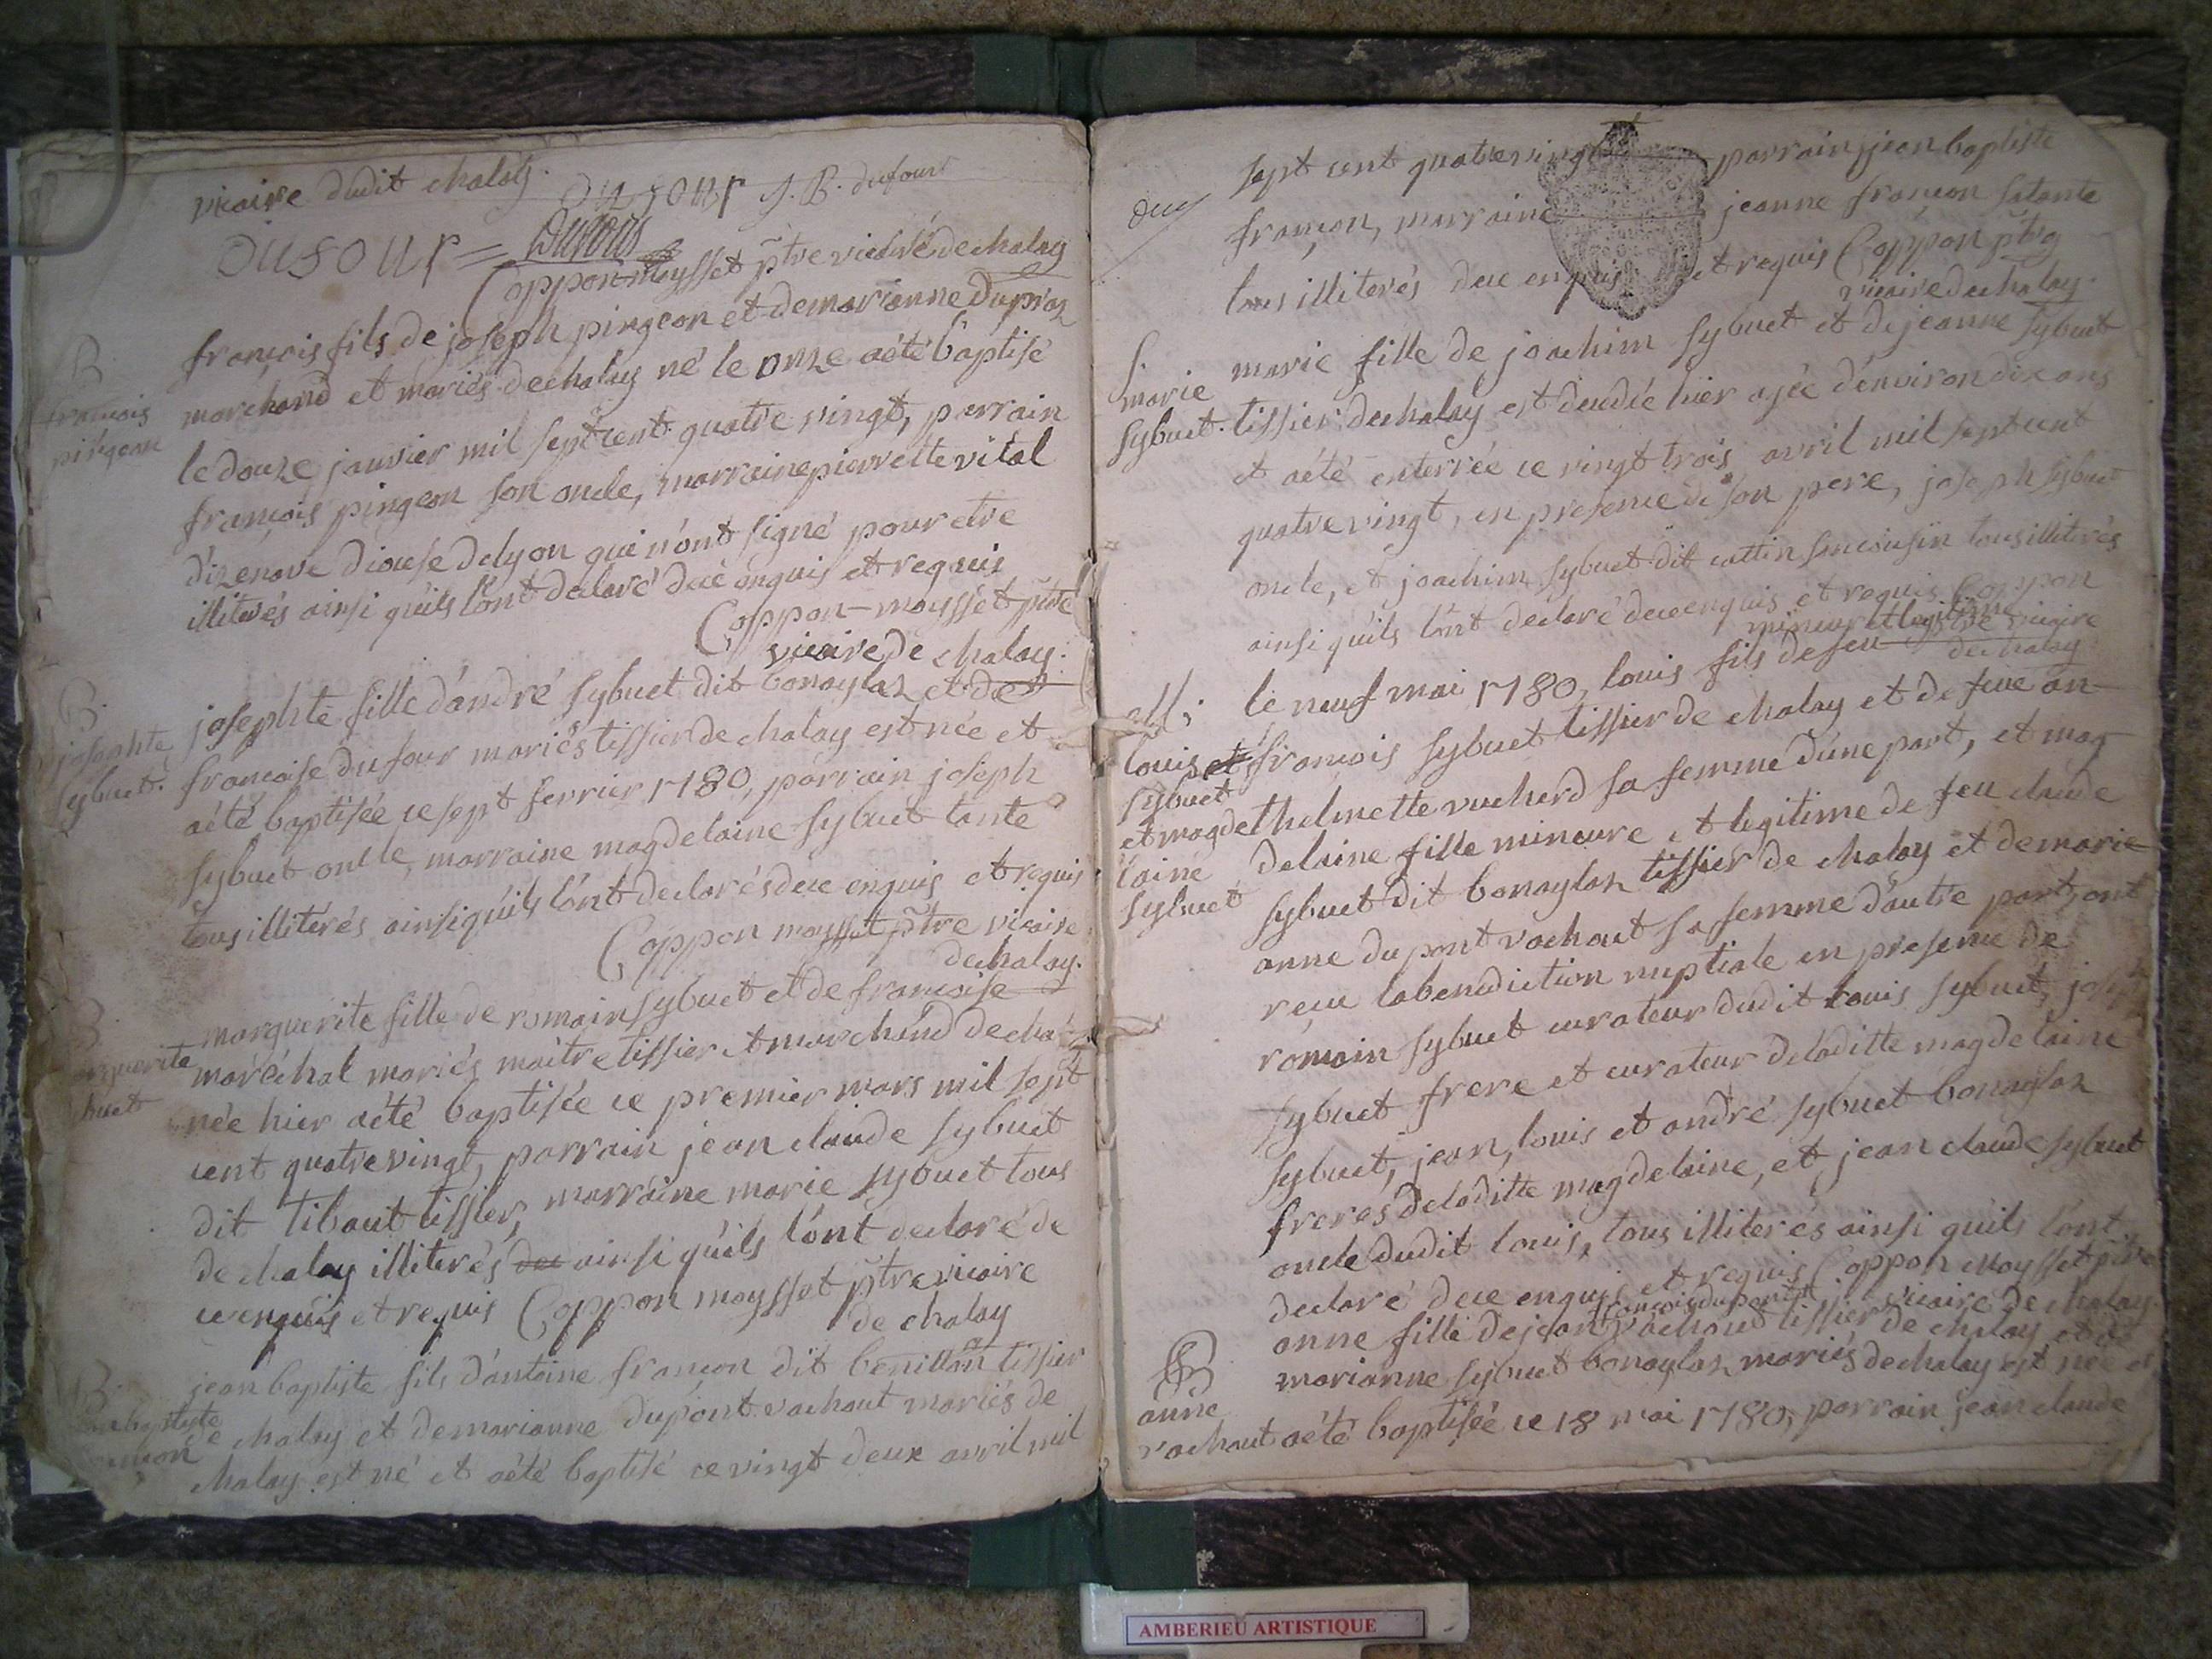 vicaire dudit chalay.
dufour J. B. dufour
dufour = 
Coppon-moysset ptre vicaire de chalay
B.
francois
pingeon
francois fils de joseph pingeon et de marianne dupras
marchand et mariés de chalay né le onze a été baptisé
le douze janvier mil sept cent quatre vingt, parrain
francois pingeon son oncle, marraine pierrette vital
d'izenave diocese de lyon qui n'ont signé pour etre
illiterés ainsi qu'ils l'ont declaré de ce enquis et requis
Coppon-moysset ptre
vicaire de chalay.
B.
josephte
sybuet.
josephte fille d'andré sybuet dit bonaglaz et de
francoise dufour mariés tissier de chalay est née et
a été baptisée ce sept ferrier 1780, parrain joseph
sybuet oncle, marraine magdelaine sybuet tante
tous illiterés ainsi qu'ils l'ont declarés de ce enquis et requis
Coppon moysset ptre vicaire
de chalay.
B.
marguerite fille de romain sybuet et de francoise
maréchal mariés maitre tissier et marchand de cha
née hier a été baptisée ce premier mars mil sept
cent quatre vingt, parrain jean claude sybuet
dit tibaut tissier, marraine marie sybuet tous
de chalay illiterés de ce ainsi qu'ils l'ont declaré de
ce enquis et requis Coppon moysset ptre vicaire
de chalay
B.
jean baptiste fils d'antoine francon dit benillon tissier
de chalay et de marianne dupont vachaut mariés de
chalay est né et a été baptisé ce vingt deux avril mil
sept cent quatre vingt parrain jean baptiste
francon, marraine jeanne francon sa tante
tous illiterés de ce enquis et requis Coppon ptre
vicaire de chalay.
S.
marie
sybuet.
marie fille de joachim sybuet et de jeanne sybuet
tissier de chalay est decedée hier agée d'environ dix ans
et a été enterrée ce vingt trois avril mil sept cent
quatre vingt, en presence de son pere, joseph sybuet
oncle, et joachim sybuet dit cattin son cousin tous illiterés
ainsi qu'ils l'ont declaré de ce enquis et requis Coppon
vicaire
de chalay
M.
louis et
sybuet
et magde
laine
sybuet
mineur et legitime
le neuf mai 1780, louis fils de feu
francois sybuet tissier de chalay et de feue an
thelmette vucherd sa femme d'une part, et mag
delaine fille mineure et legitime de feu claude
sybuet dit bonaglaz tissier de chalay et de marie
anne dupont vachaut sa femme d'autre part, ont
recu la benediction nuptiale en presence de
romain sybuet curateur dudit louis sybuet, joseph
sybuet frere et curateur de laditte magdelaine
sybuet, jean, louis et andré sybuet bonaglaz
freres de laditte magdelaine, et jean claude sybuet
oncle dudit louis, tous illiterés ainsi qu'ils l'ont
declaré de ce enquis et requis Coppon moysset ptre
vicaire de chalay.
B
anne
vachaut
francois dupont
anne fille de jean vachaud tissier de chalay et de
marianne sybuet bonaglaz mariés de chalay est née et
a été baptisée ce 18 mai 1780, parrain jean claude
AMBERIEU ARTISTIQUE